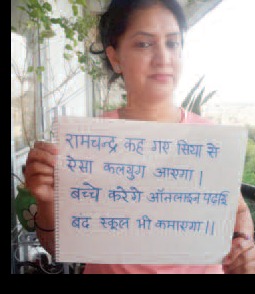 रामचन्द्र कह गए सिया से
ऐसा कलयुग आएगा।
बच्चे करेगे ऑनलाइन पढाई
बंद स्कूल भी कमाएगा।।